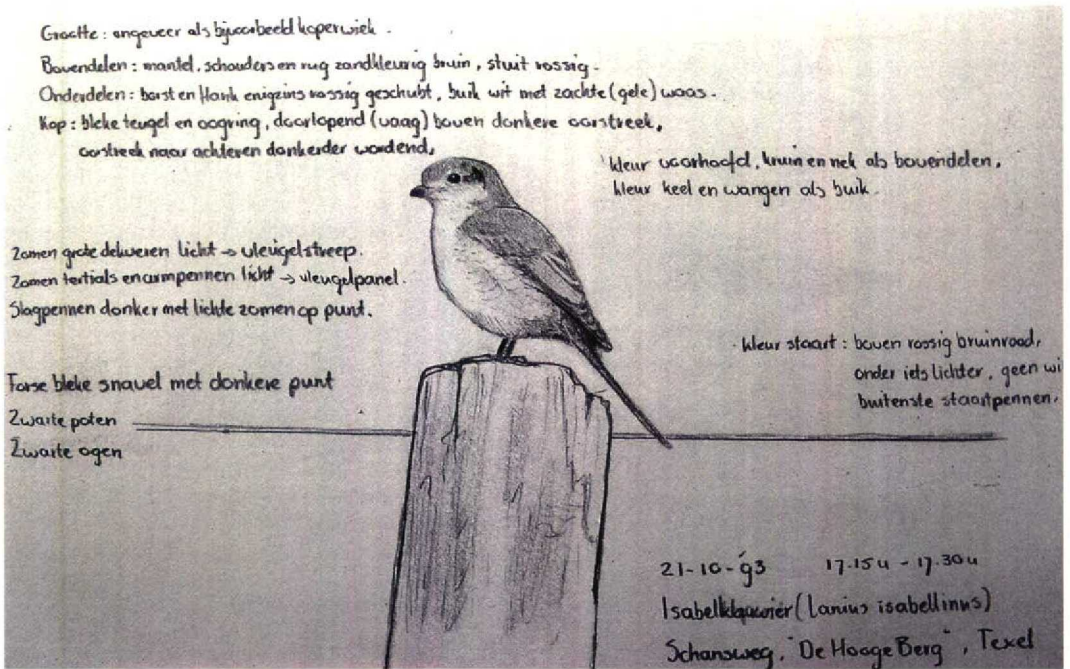 Grootte : ongeveer als bijvoorbeeld koperwiek.
Bovendelen : mantel, schouders en rug zandkleurig bruin, stuit rossig.
Onderdelen : borst en flank enigzins rossig geschubt, buik wit met zachte (gele) waas.
Kop : bleke teugel en oogring, doorlopend (vaag) boven donkere oorstreek,
oorstreek naar achteren donkerder wordend,
kleur voorhoofd, kruin en nek als bovendelen,
kleur keel en wangen als buik.
Zomen grote dekveren licht → vleugelstreep.
Zomen tertials en armpennen licht → vleugelpanel.
Slagpennen donker met lichte zomen op punt.
kleur staart : boven rossig bruinrood,
onder iets lichter, geen wi
buitenste staartpennen.
Forse bleke snavel met donkere punt
Zwarte poten
Zwarte ogen
21-10-'93 17.15u - 17.30u
Isabelklauwier (Lanius isabellinus)
Schansweg, "De Hooge Berg", Texel